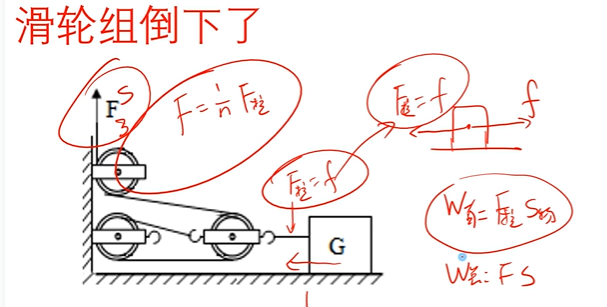 滑轮组倒下了
S
F
3
F=1/n F拉
F拉=f
f
F拉=f
G
W有=F拉 S物
W总=FS